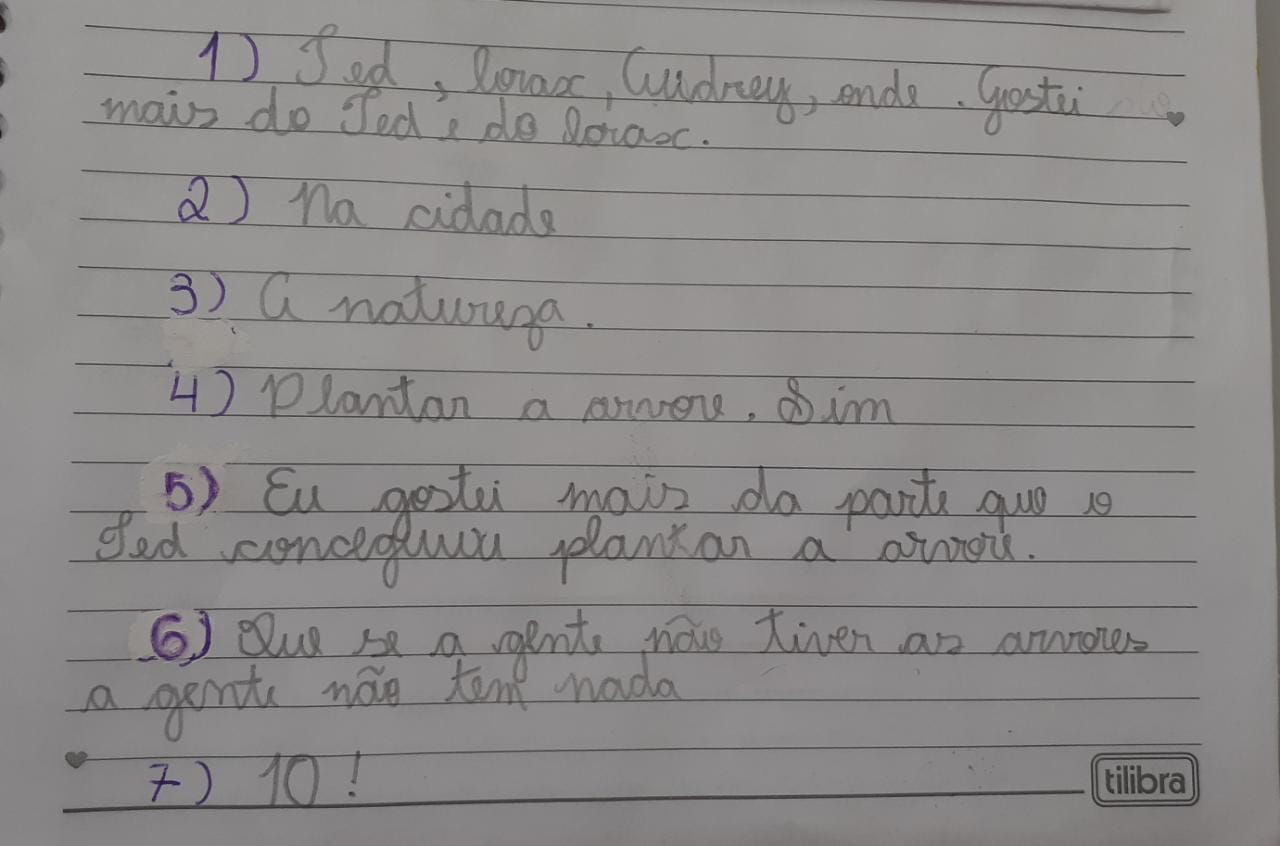 1) Ted, lorax, Audrey, onde. Gostei
mais do Ted e do lorax.
2) Na cidade
3) A natureza.
4) Plantar a arvore. Sim
5) Eu gostei mais da parte que o
Ted conceguiu plantar a arvore.
6) Que se a gente não tiver as arvores
a gente não tem nada
7) 10!
tilibra